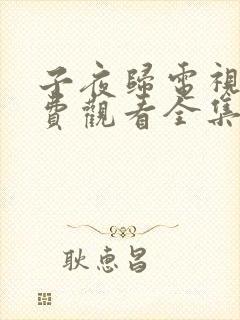 子夜歸電視
費觀看全集
耿惠昌